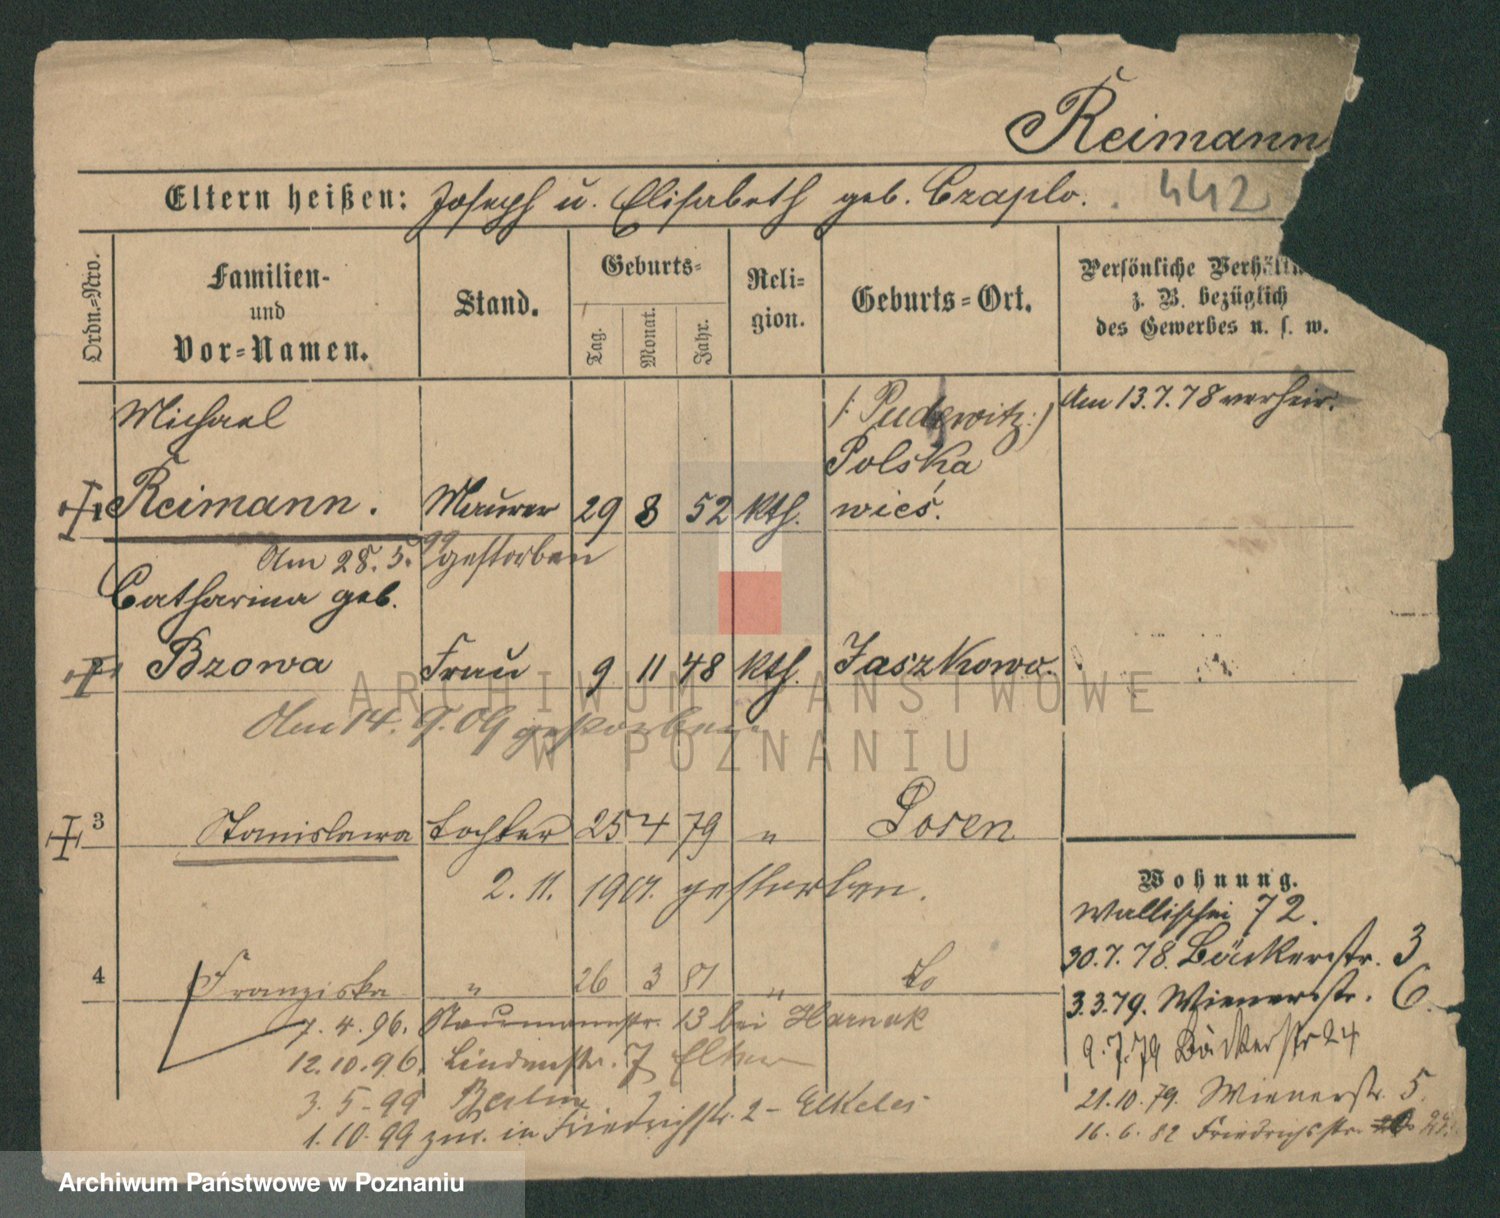 Reimann
Eltern heißen: Joseph u. Elisabeth geb. Czaplo. 442
Ordn.-Nro.
Familien- und Vor-Namen.
Stand.
Geburts-
Tag. Monat. Jahr.
Reli-
gion.
Geburts-Ort.
Persönliche
z. B. bezüglich
des Gewerbes u. s. w.
Michael (: Pudewitz :) Am 13.7.78 verheir.
Polska
1 Reimann. Maurer 29 8 52 kth. wieś.
Am 28.5.99 gestorben
Catharina geb.
2 Bzowa Frau 9 11 48 kth. Jaszkowo.
Am 14. 9. 09 gestorben
3 Stanislawa Tochter 25 4 79 " Posen
2. 11. 1901. gestorben.
4 Franziska " 26 3 81 " do
7. 4. 96. Naumannstr. 13 bei Harnak
12.10.96. Lindenstr. 7 Eltern
3. 5-99 Berlin
1.10.99 zur. in Friedrichstr. 2 - Elkeles
Wohnung.
Wallischei 72.
30.7.78. Bäckerstr. 3
3.3.79. Wienerstr. 6.
9.7.79 Bäckerstr 24
21.10.79. Wienerstr. 5.
16.6.82 Friedrichstr.
ARCHIWUM PAŃSTWOWE
W POZNANIU
Archiwum Państwowe w Poznaniu